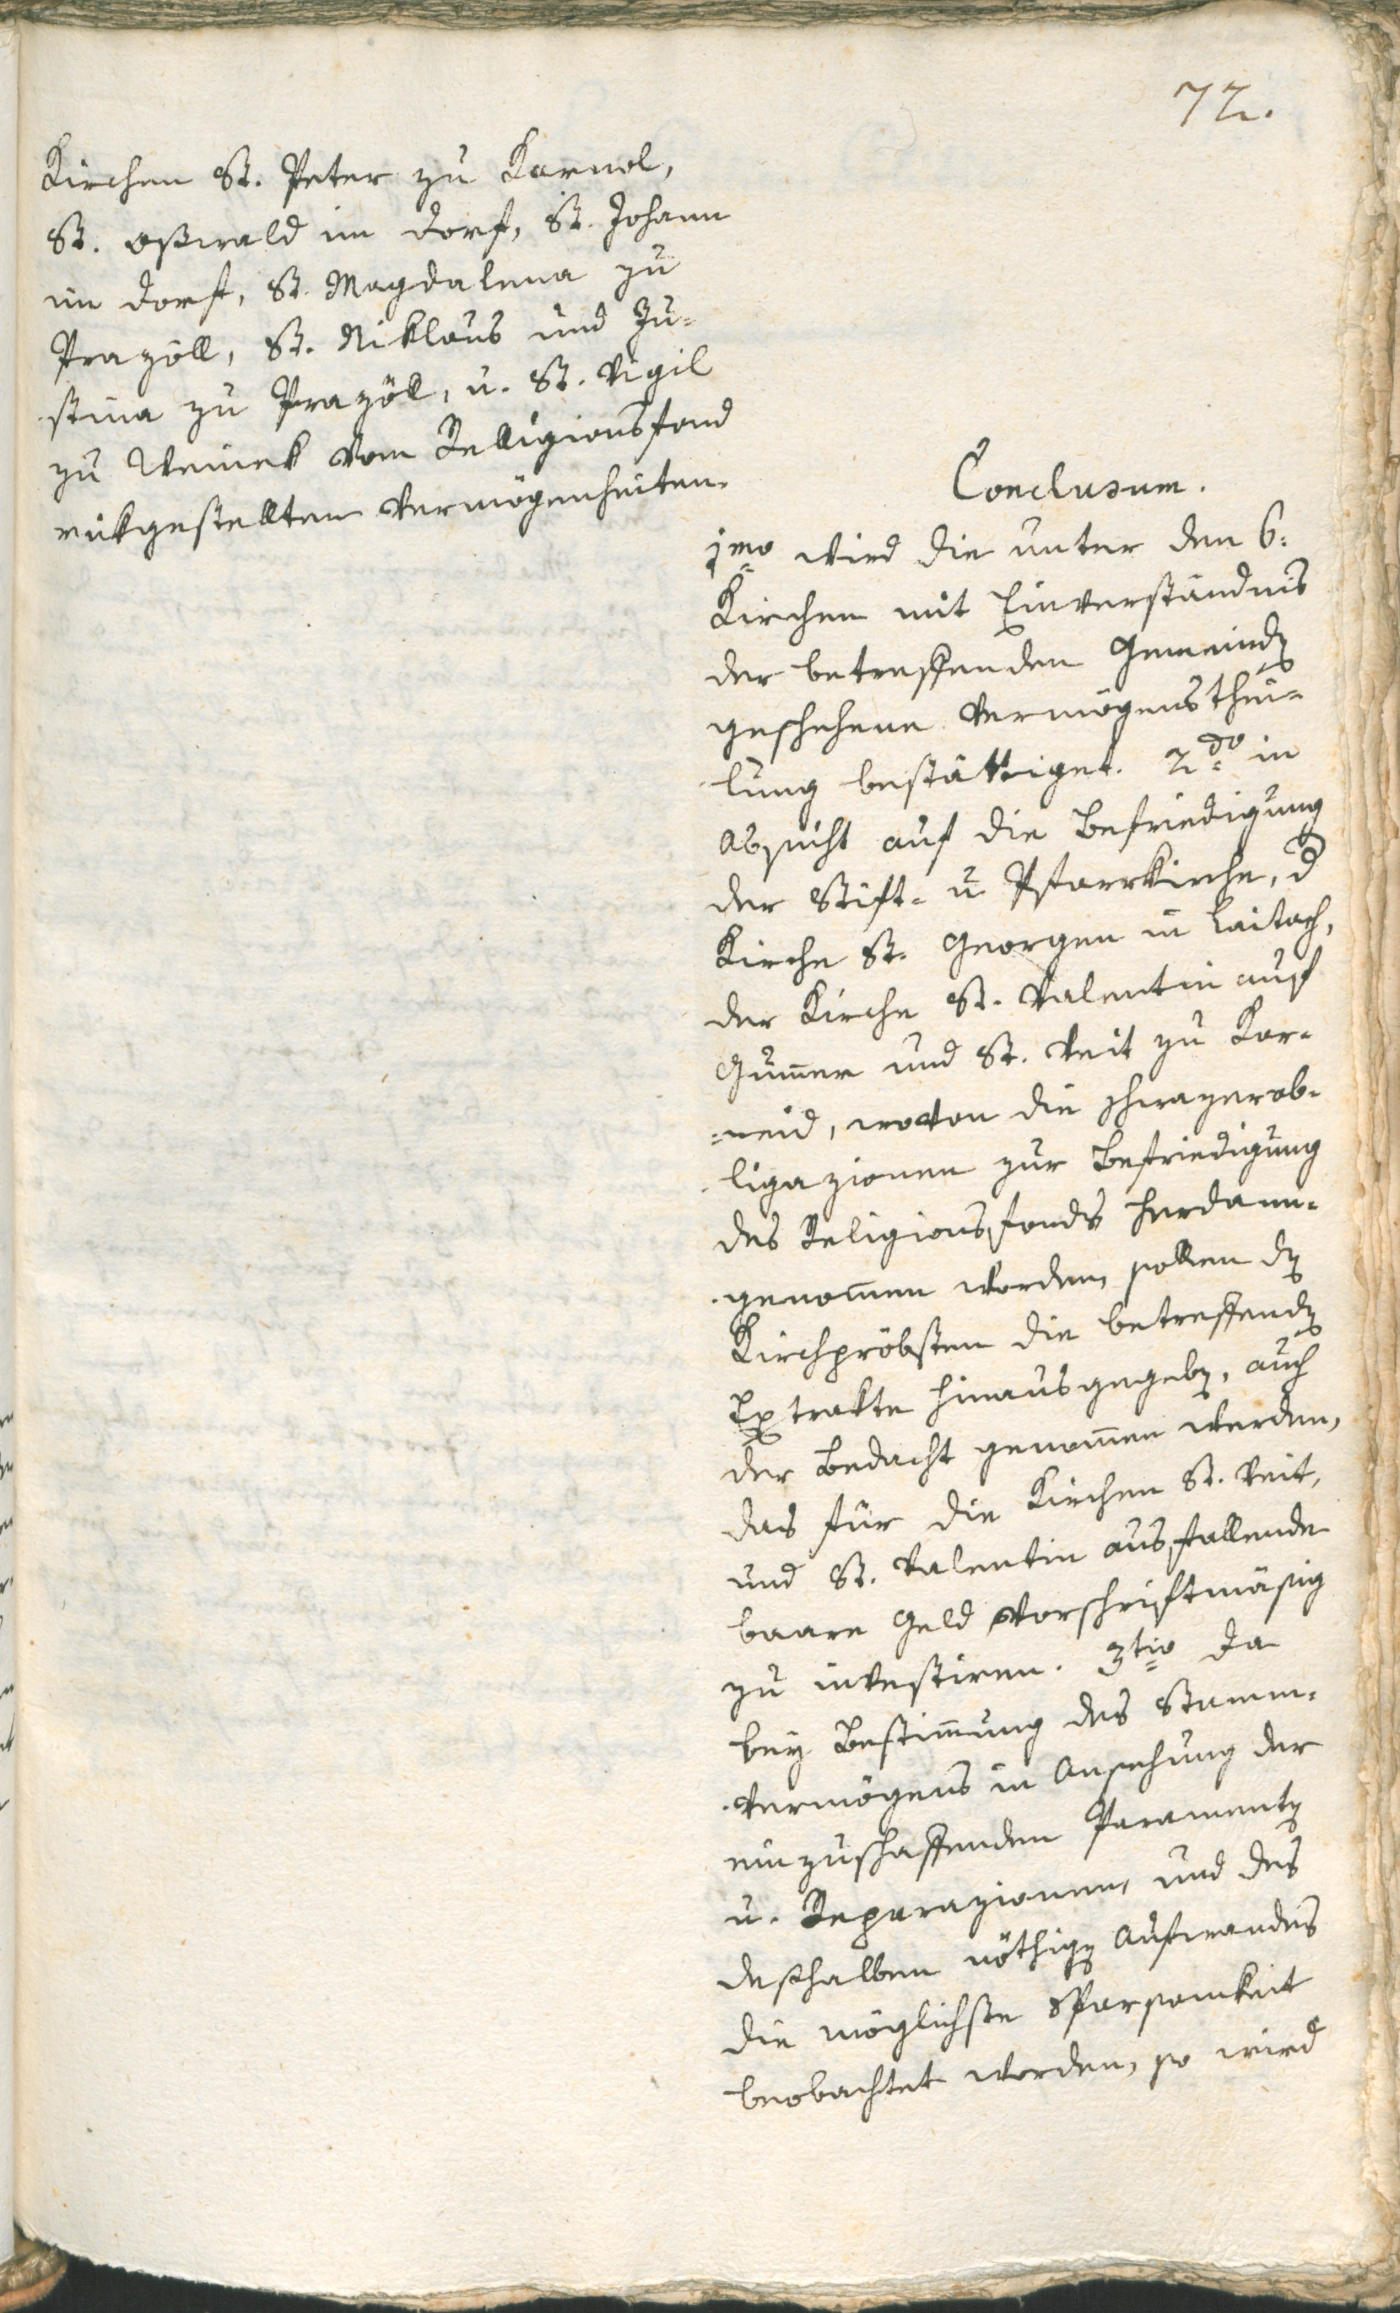 72.
Kirchen St. Peter zu Karnol,
St. Oßwald im Dorf, St. Johann
im Dorf, St. Magdalena zu
Prazöll, St. Niklaus und Ju¬
stina zu Prazöll, u. St. Vigil
zu Weinek vom Religionsfond
rükgestellten Vermögenheiten.
Conclusum.
1mo wird die unter den 6.
Kirchen mit Einverständnis
der betreffenden Gemeinden
geschehene Vermögensthei¬
lung bestättiget. 2do in
Absicht auf die Befriedigung
der Stift- u Pfarrkirche, d
Kirche St. Georgen in Laitach,
der Kirche St. Valentin auf
Gum̅er und St. Veit zu Kar¬
neid, wovon die schwazerob¬
ligazionen zur Befriedigung
des Religionsfonds herdann¬
genom̅en worden, sollen den
Kirchpröbsten die betreffenden
Extrakte hinausgegeben, auch
der Bedacht genom̅en werden,
das für die Kirchen St. Veit,
und St. Valentin ausfallende
baare Geld vorschriftmäsig
zu investiren. 3tio Da
bey Bestim̅ung des Stamm¬
vermögens in Ansehung der
einzuschaffenden Paramenten
u. Reparazionen, und des
deshalben nöthigen Aufwandes
die möglichste Sparsamkeit
beobachtet worden, so wird